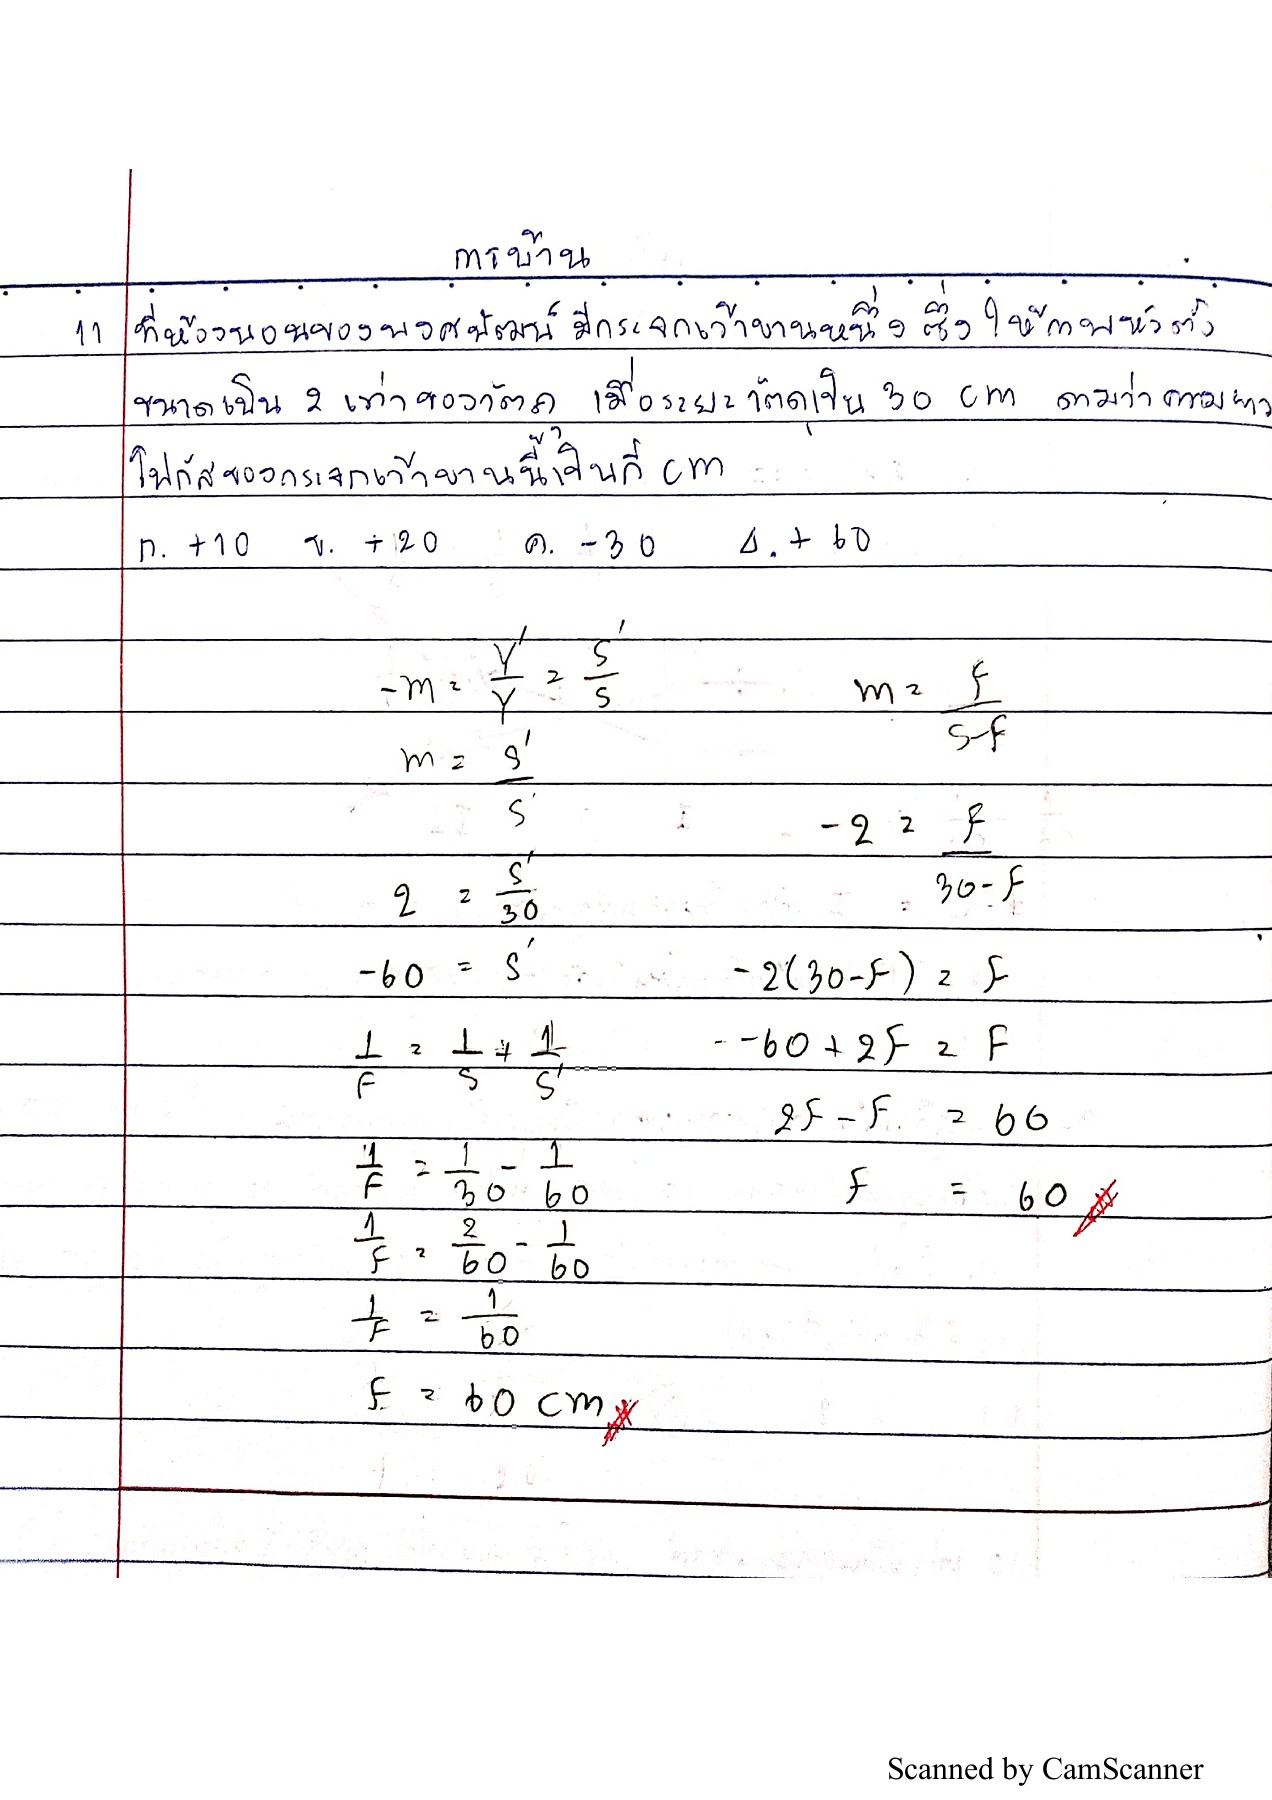 การบ้าน
11 ที่ห้องนอนของพงศพัฒน์ มีกระจกเว้าบานหนึ่ง ซึ่งให้ภาพหัวตั้ง
ขนาดเป็น 2 เท่าของวัตถุ เมื่อระยะวัตถุเป็น 30 cm ถามว่าความยาว
โฟกัสของกระจกเว้าบานนี้เป็นกี่ cm
ก. +10 ข. +20 ค. -30 ง. +60
-m = Y'/Y = S'/S
m = S'/S
2 = S'/30
-60 = S'
1/F = 1/S + 1/S'
1/F = 1/30 - 1/60
1/F = 2/60 - 1/60
1/F = 1/60
F = 60 cm
m = F/S-F
-2 = F/30-F
-2(30-F) = F
-60+2F = F
2F-F = 60
F = 60
Scanned by CamScanner